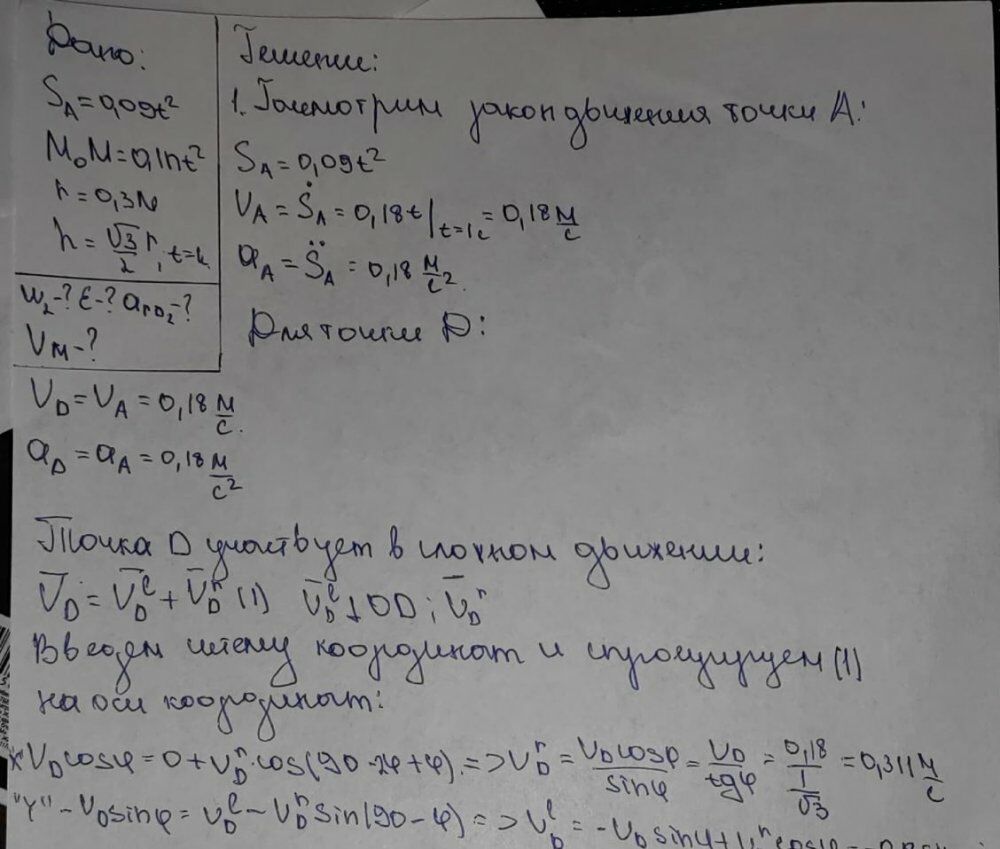 Дано:
S_A = 0,09t²
M₀M = 0,1πt²
r = 0,3м
h = √3/2 r, t=1c
ω₂-? ε-? a_rD₂-?
V_M-?
Решение:
1. Рассмотрим закон движения точки А:
S_A = 0,09t²
V_A = Ṡ_A = 0,18t|t=1c = 0,18 м/с
a_A = S̈_A = 0,18 м/с².
Для точки D:
V_D = V_A = 0,18 м/с.
a_D = a_A = 0,18 м/с²
Точка D участвует в сложном движении:
V̄_D = V̄_D^e + V̄_D^r (1) V̄_D^e ⊥ OD; V̄_D^r
Введем систему координат и спроецируем (1)
на оси координат:
"x" V_D cosφ = 0 + V_D^r · cos(90-2φ+φ) => V_D^r = V_D cosφ/sinφ = V_D/tgφ = 0,18/(1/√3) = 0,311 м/с
"Y" -V_D sinφ = V_D^e - V_D^r sin(90-φ) => V_D^e = -V_D sinφ + V_D^r cosφ =